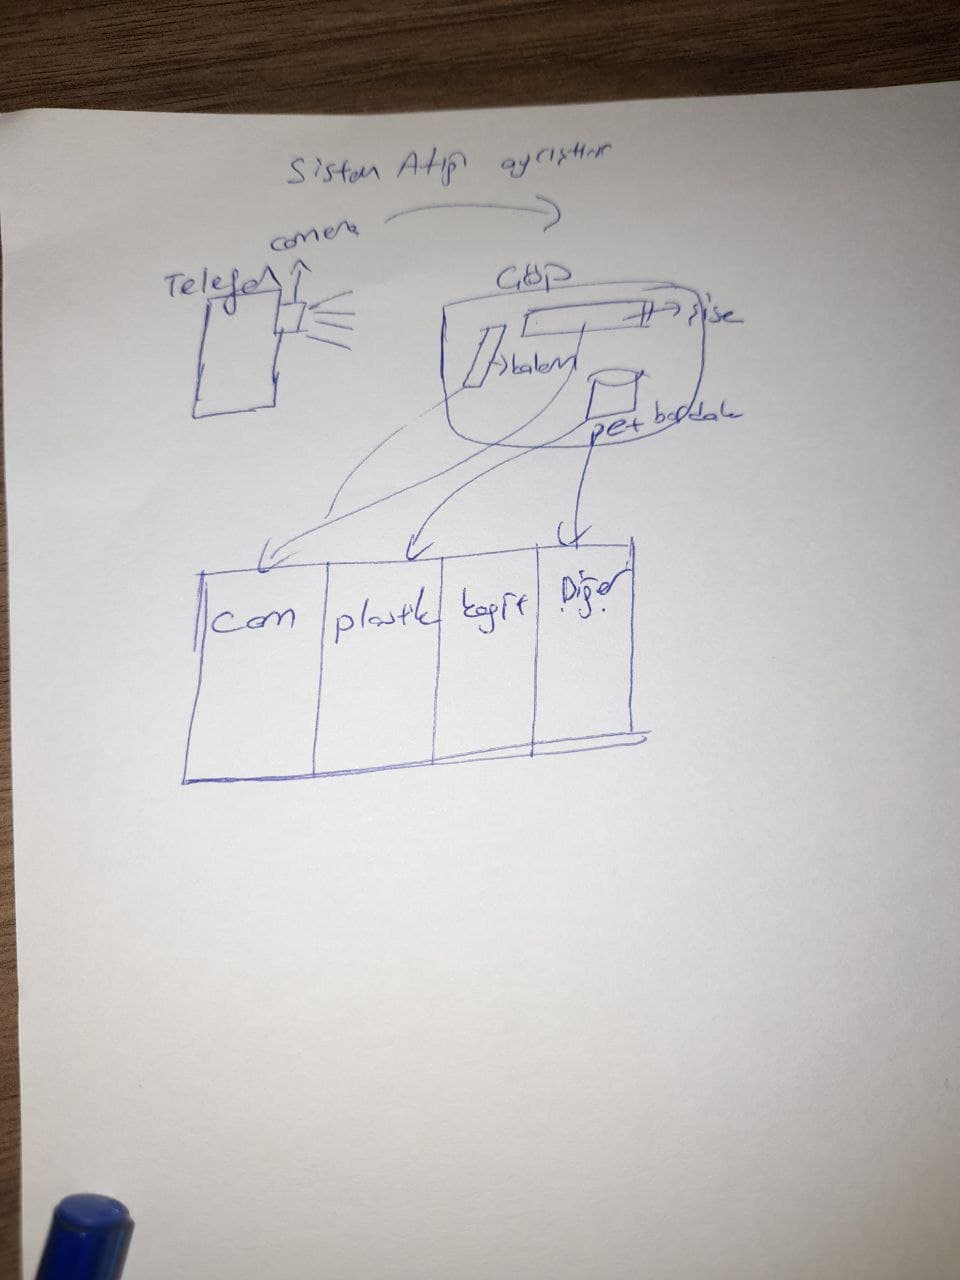 Sistem Atıp ayrıştırır
camera
Telefon
ÇÖP
şişe
kalem
pet bardak
cam
plastik
kağıt
Diğer